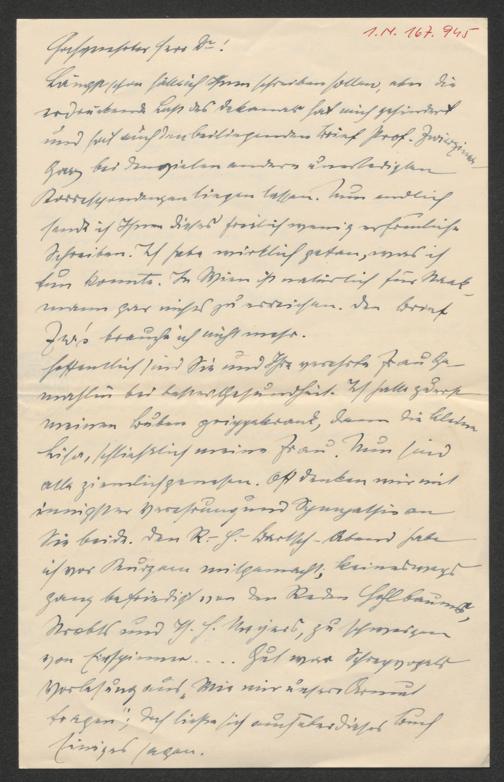 I.N. 167.945
Hochverehrter Herr Dr!
Längst schon hätte ich Ihnen schreiben sollen, aber die
erdrückende Last des Dekanats hat mich gehindert
und hat auch den beiliegenden Brief Prof. Zwierzinas
ganz bei den vielen andern unerledigten
Korrespondenzen liegen lassen. Nun endlich
sende ich Ihnen dieses freilich wenig erfreuliche
Schreiben. Ich habe wirklich getan, was ich
tun konnte. In Wien ist natürlich für
mann gar nichts zu erreichen. Den Brief
Zw's brauche ich nicht mehr.
Hoffentlich sind Sie und Ihre verehrte Frau Ge-
mahlin bei bester Gesundheit. Ich hatte zuerst
meinen Buben grippekrank, dann die kleine
Lisa, schließlich meine Frau. Nun sind
alle ziemlich genesen. Oft denken wir mit
innigster Verehrung und Sympathie an
Sie beide. Den R.-H.-Bartsch-Abend habe
ich vor Kurzem mitgemacht, keineswegs
ganz befriedigt von den Reden Hohlbaums,
Strobls und zu schweigen
von .... Gut war Schreyvogels
Vorlesung aus „Wie wir unsere Armut
tragen"; doch ließe sich auch über dieses Buch
Einiges sagen.